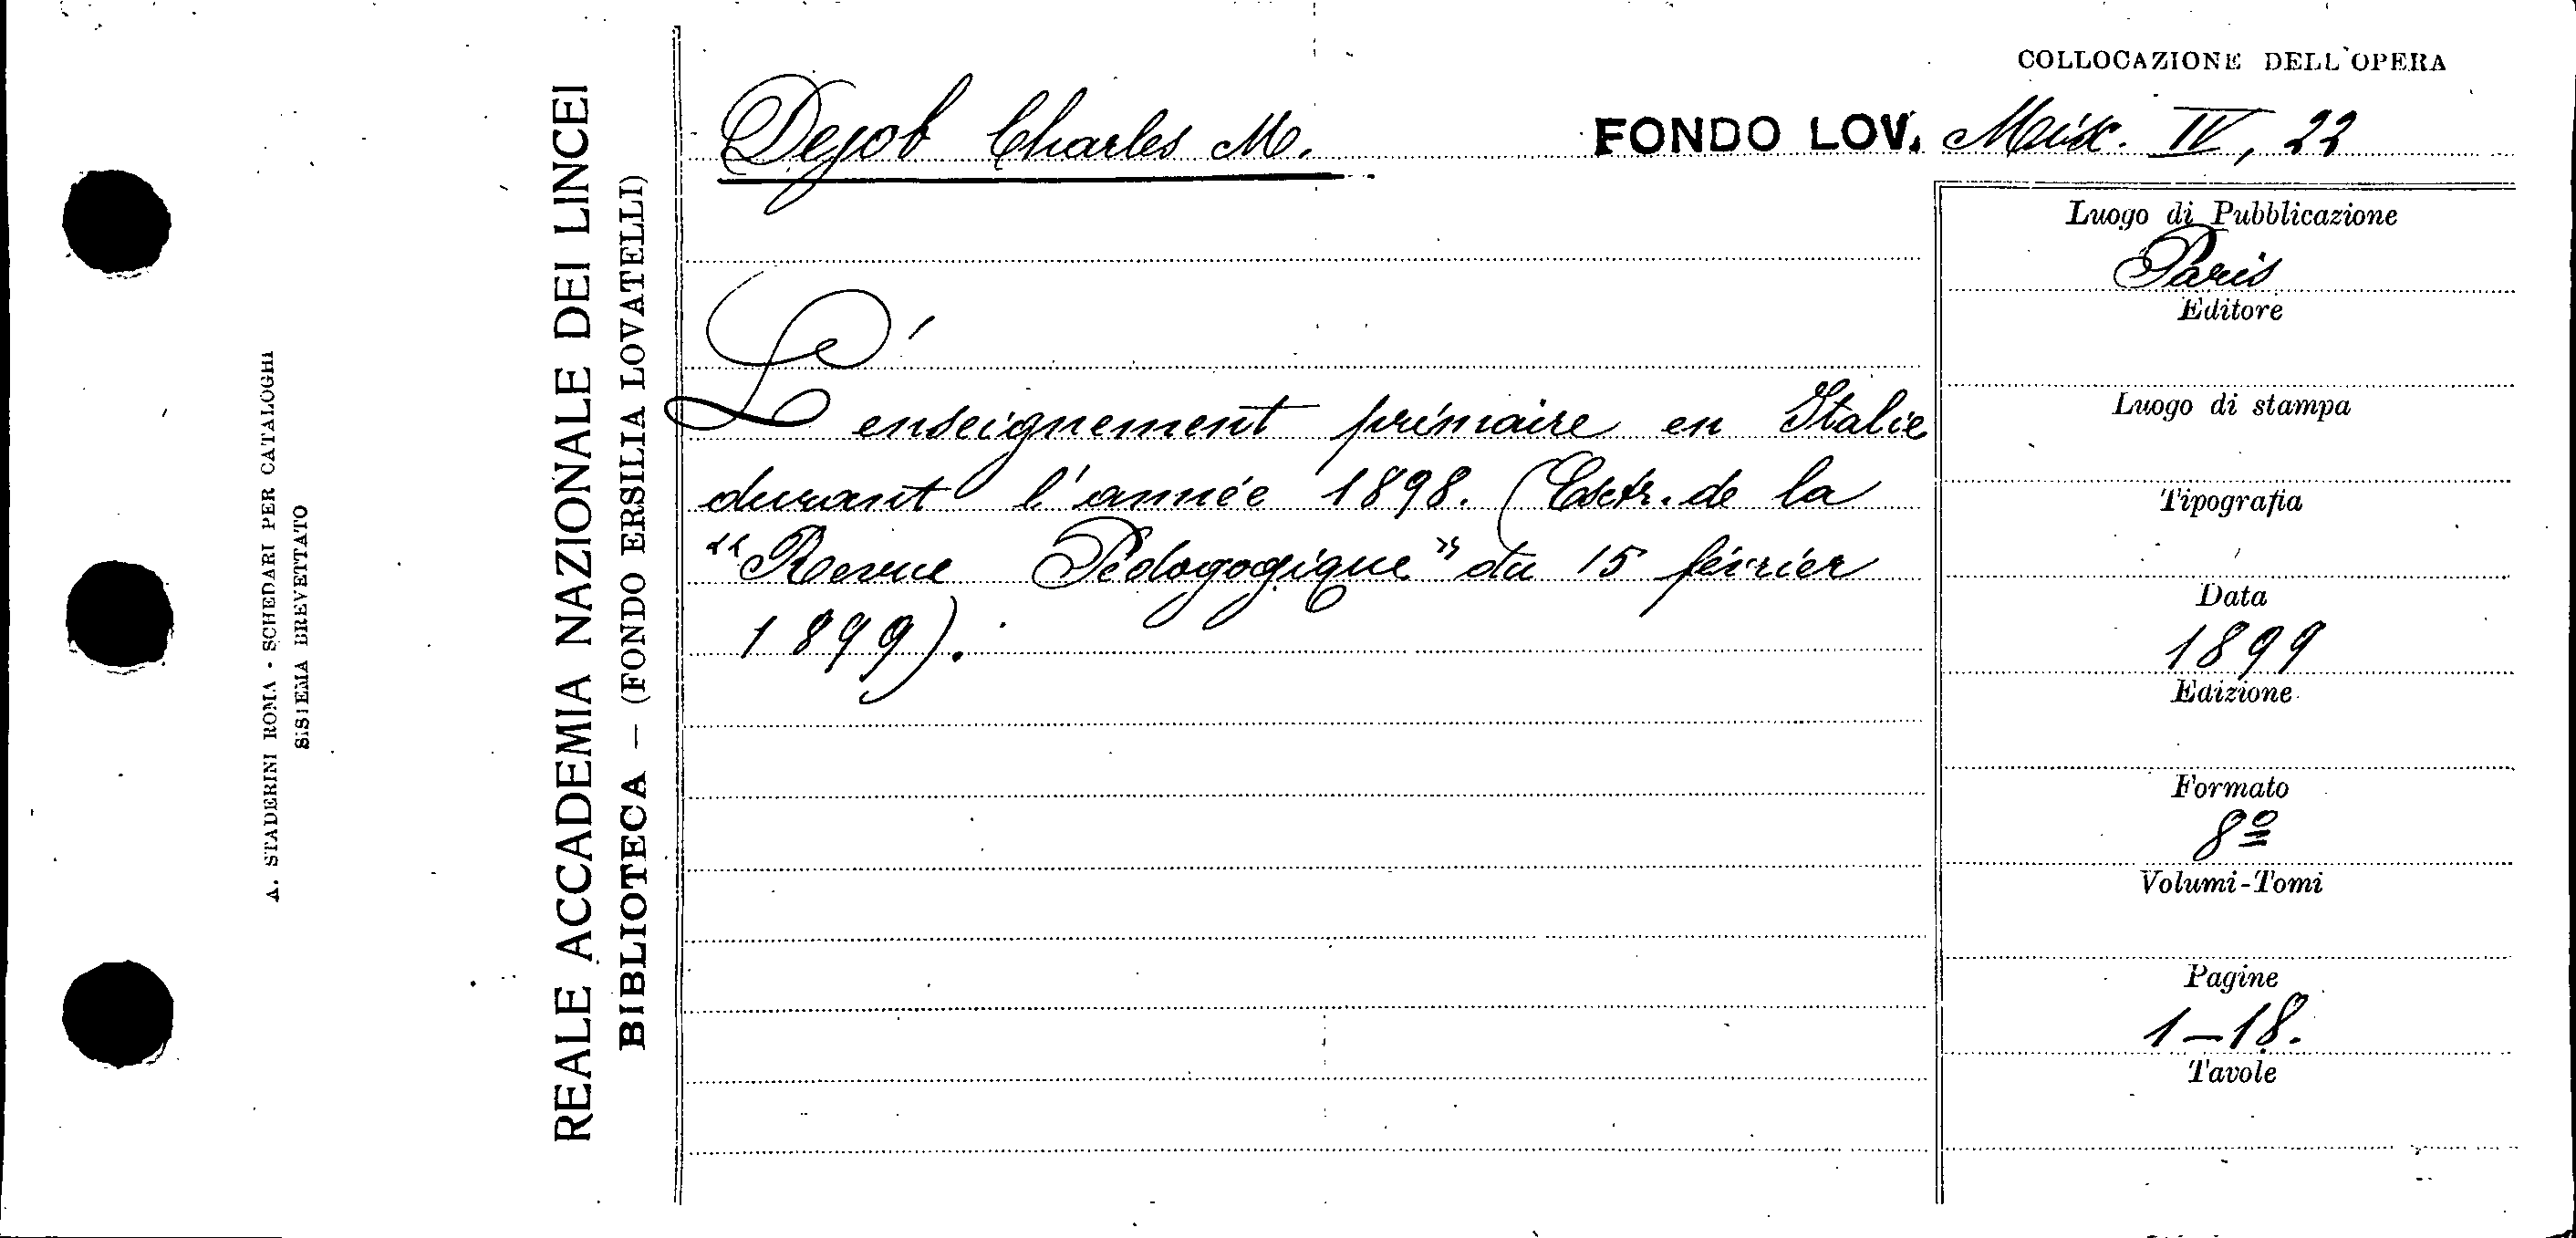 A. STADERINI ROMA - SCHEDARI PER CATALOGHI
SISTEMA BREVETTATO
REALE ACCADEMIA NAZIONALE DEI LINCEI
BIBLIOTECA — (FONDO ERSILIA LOVATELLI)
Dejob Charles M.
L'
enseignement primaire en Italie
durant l'année 1898. (Estr. de la
"Revue Pédagogique" du 15 février
1899).
COLLOCAZIONE DELL'OPERA
FONDO LOV. Misc. IV, 22
Luogo di Pubblicazione
Paris
Editore
Luogo di stampa
Tipografia
Data
1899
Edizione
Formato
8º
Volumi-Tomi
Pagine
1-18.
Tavole